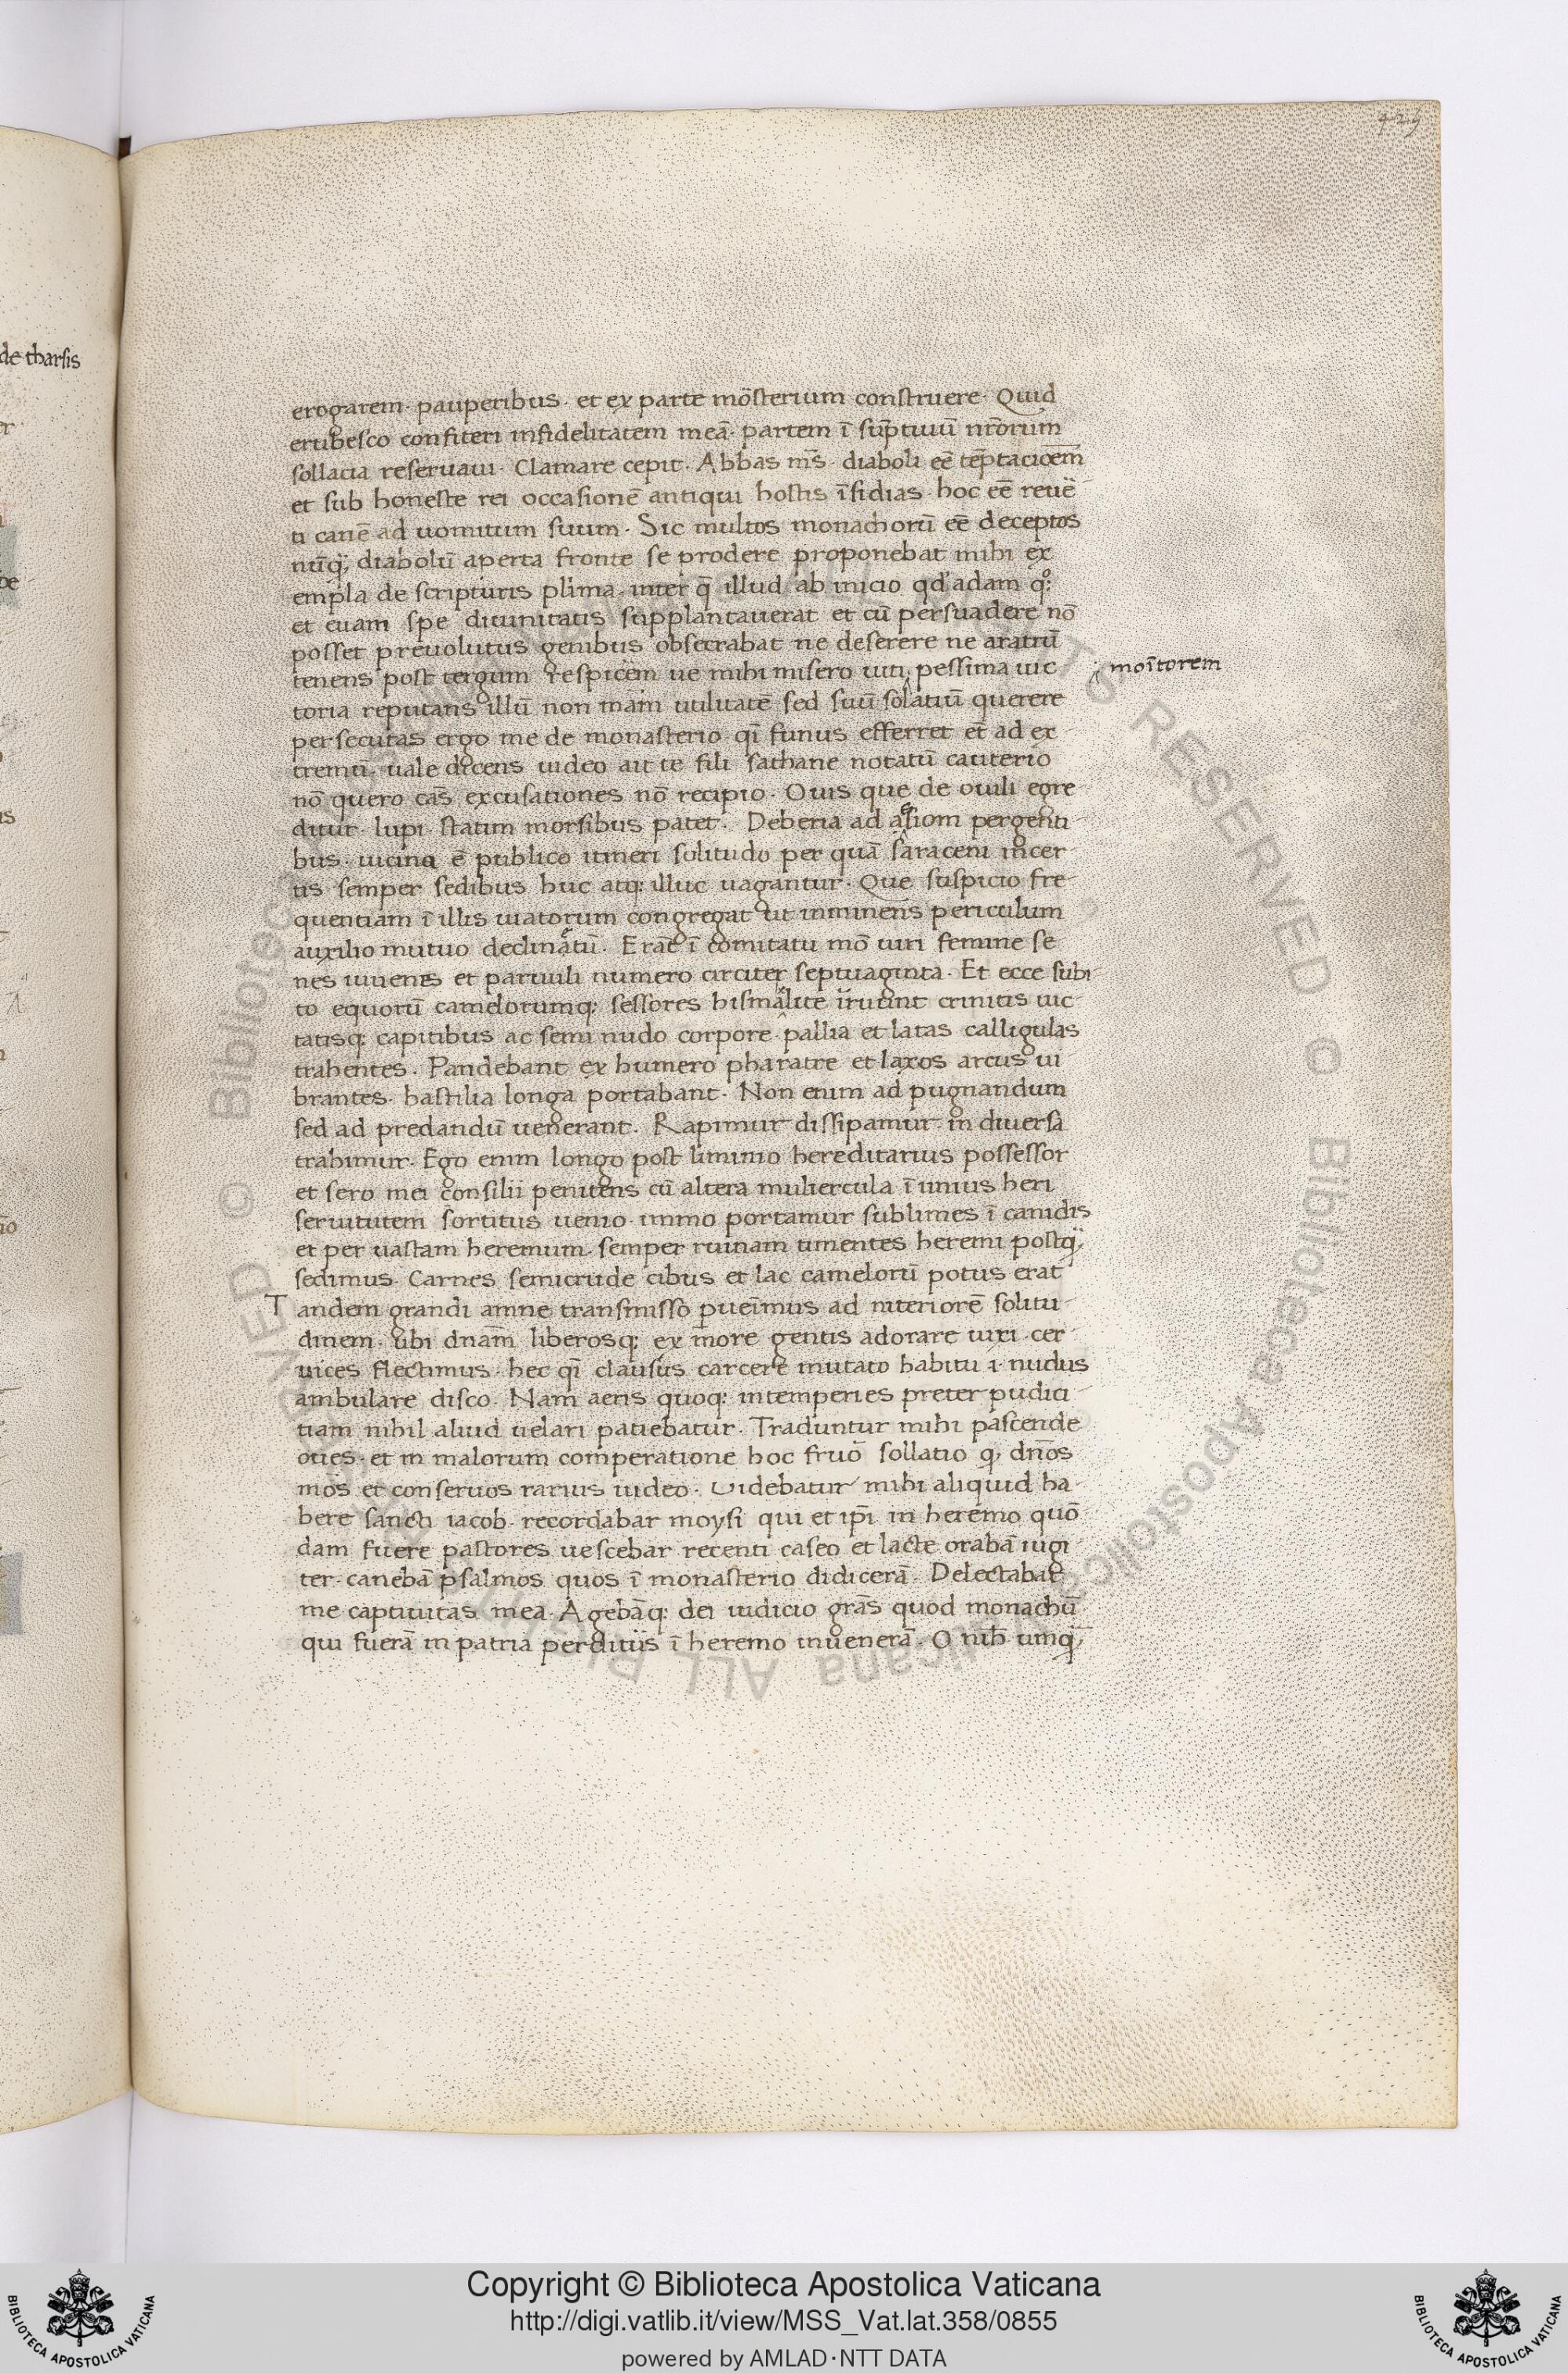 429
de tharsis
erogarem· pauperibus· et ex parte mōsterium construere· Quid
erubesco confiteri infidelitatem meā· partem ī sūptuuū nrōrum
sollacia reseruaui· Clamare cepit· Abbas ms̄· diaboli eē tēptacioēm
et sub honeste rei occasionē antiqui hostis īsidias· hoc eē reuē
ti canē ad uomitum suum· Sic multos monachorū eē deceptos
nūq̃; diabolū aperta fronte se prodere proponebat mihi ex
empla de scripturis plīma· inter q̄ illud ab inicio qd' adam qº:
et euam spe diuinitatis supplantauerat et cū persuadere nō
posset preuolutus genibus obsecrabat ne deserere ne aratrū
tenens post tergum respicēm ue mihi misero uiti pessima uic
moītorem
toria reputans illū non mām utilitatē sed suū solatiū querere
persecutas ergo me de monasterio· qī funus efferret et ad ex
tremū· uale dicens uideo ait te fili sathane notatū cauterio
nō quero cās excusationes nō recipio· Ouis que de ouili egre
ditur· lupi· statim morsibus patet· Deberia ad aesiom pergenti
bus· uicina ē publico itineri solitudo per quā saraceni incer
tis semper sedibus huc atq: illuc uagantur· Que suspicio fre
quentiam ī illis uiatorum congregat ut inminens periculum
auxilio mutuo declinaētū· Erāt ī comitatu mō uiri femine se
nes iuuenes et paruuli numero circiter septuaginta· Et ecce subi
to equorū camelorumq: sessores hismaelite īrutunt crinitis uic
tatisq: capitibus ac semi nudo corpore· pallia et latas calligulas
trahentes· Pandebant ex humero pharatre et laxos arcus ui
brantes· hastilia longa portabant· Non enim ad pugnandum
sed ad predandū uenerant· Rapimur dissipamur· in diuersa
trahimur· Ego enim longo post limino hereditarius possessor
et sero mei consilii penitens cū altera muliercula ī unius heri
seruitutem sortitus uenio· immo portamur sublimes ī camdis
et per uastam heremum· semper ruinam timentes heremi postq̃;
sedimus· Carnes semicrude cibus et lac camelorū potus erat
Tandem grandi amne transmisso pueīmus ad interiorē solitu
dinem· ubi dnām liberosq: ex more gentis adorare iuxi· cer
uices flectimus· hec qī clausus carcere mutato habitu i· nudus
ambulare disco· Nam aeris quoq: intemperies preter pudici
tiam nihil aliud uelari patiebatur· Traduntur mihi pascende
oues· et in malorum comperatione hoc fruō sollatio q, dn̄os
mōs et conseruos rarius uideo· Uidebatur mihi aliquid ha
bere sancti iacob· recordabar moysi qui et ip̄i in heremo quō
dam fuere pastores uescebar recenti caseo et lacte orabā iugi
ter· canebā psalmos quos ī monasterio didicerā· Delectabat
me captiuitas mea· Agebāq: dei iudicio grās quod monachū
qui fuerā in patria perditūs ī heremo inuenerā· O nih̄ umq̃,
Copyright © Biblioteca Apostolica Vaticana
http://digi.vatlib.it/view/MSS_Vat.lat.358/0855
powered by AMLAD·NTT DATA